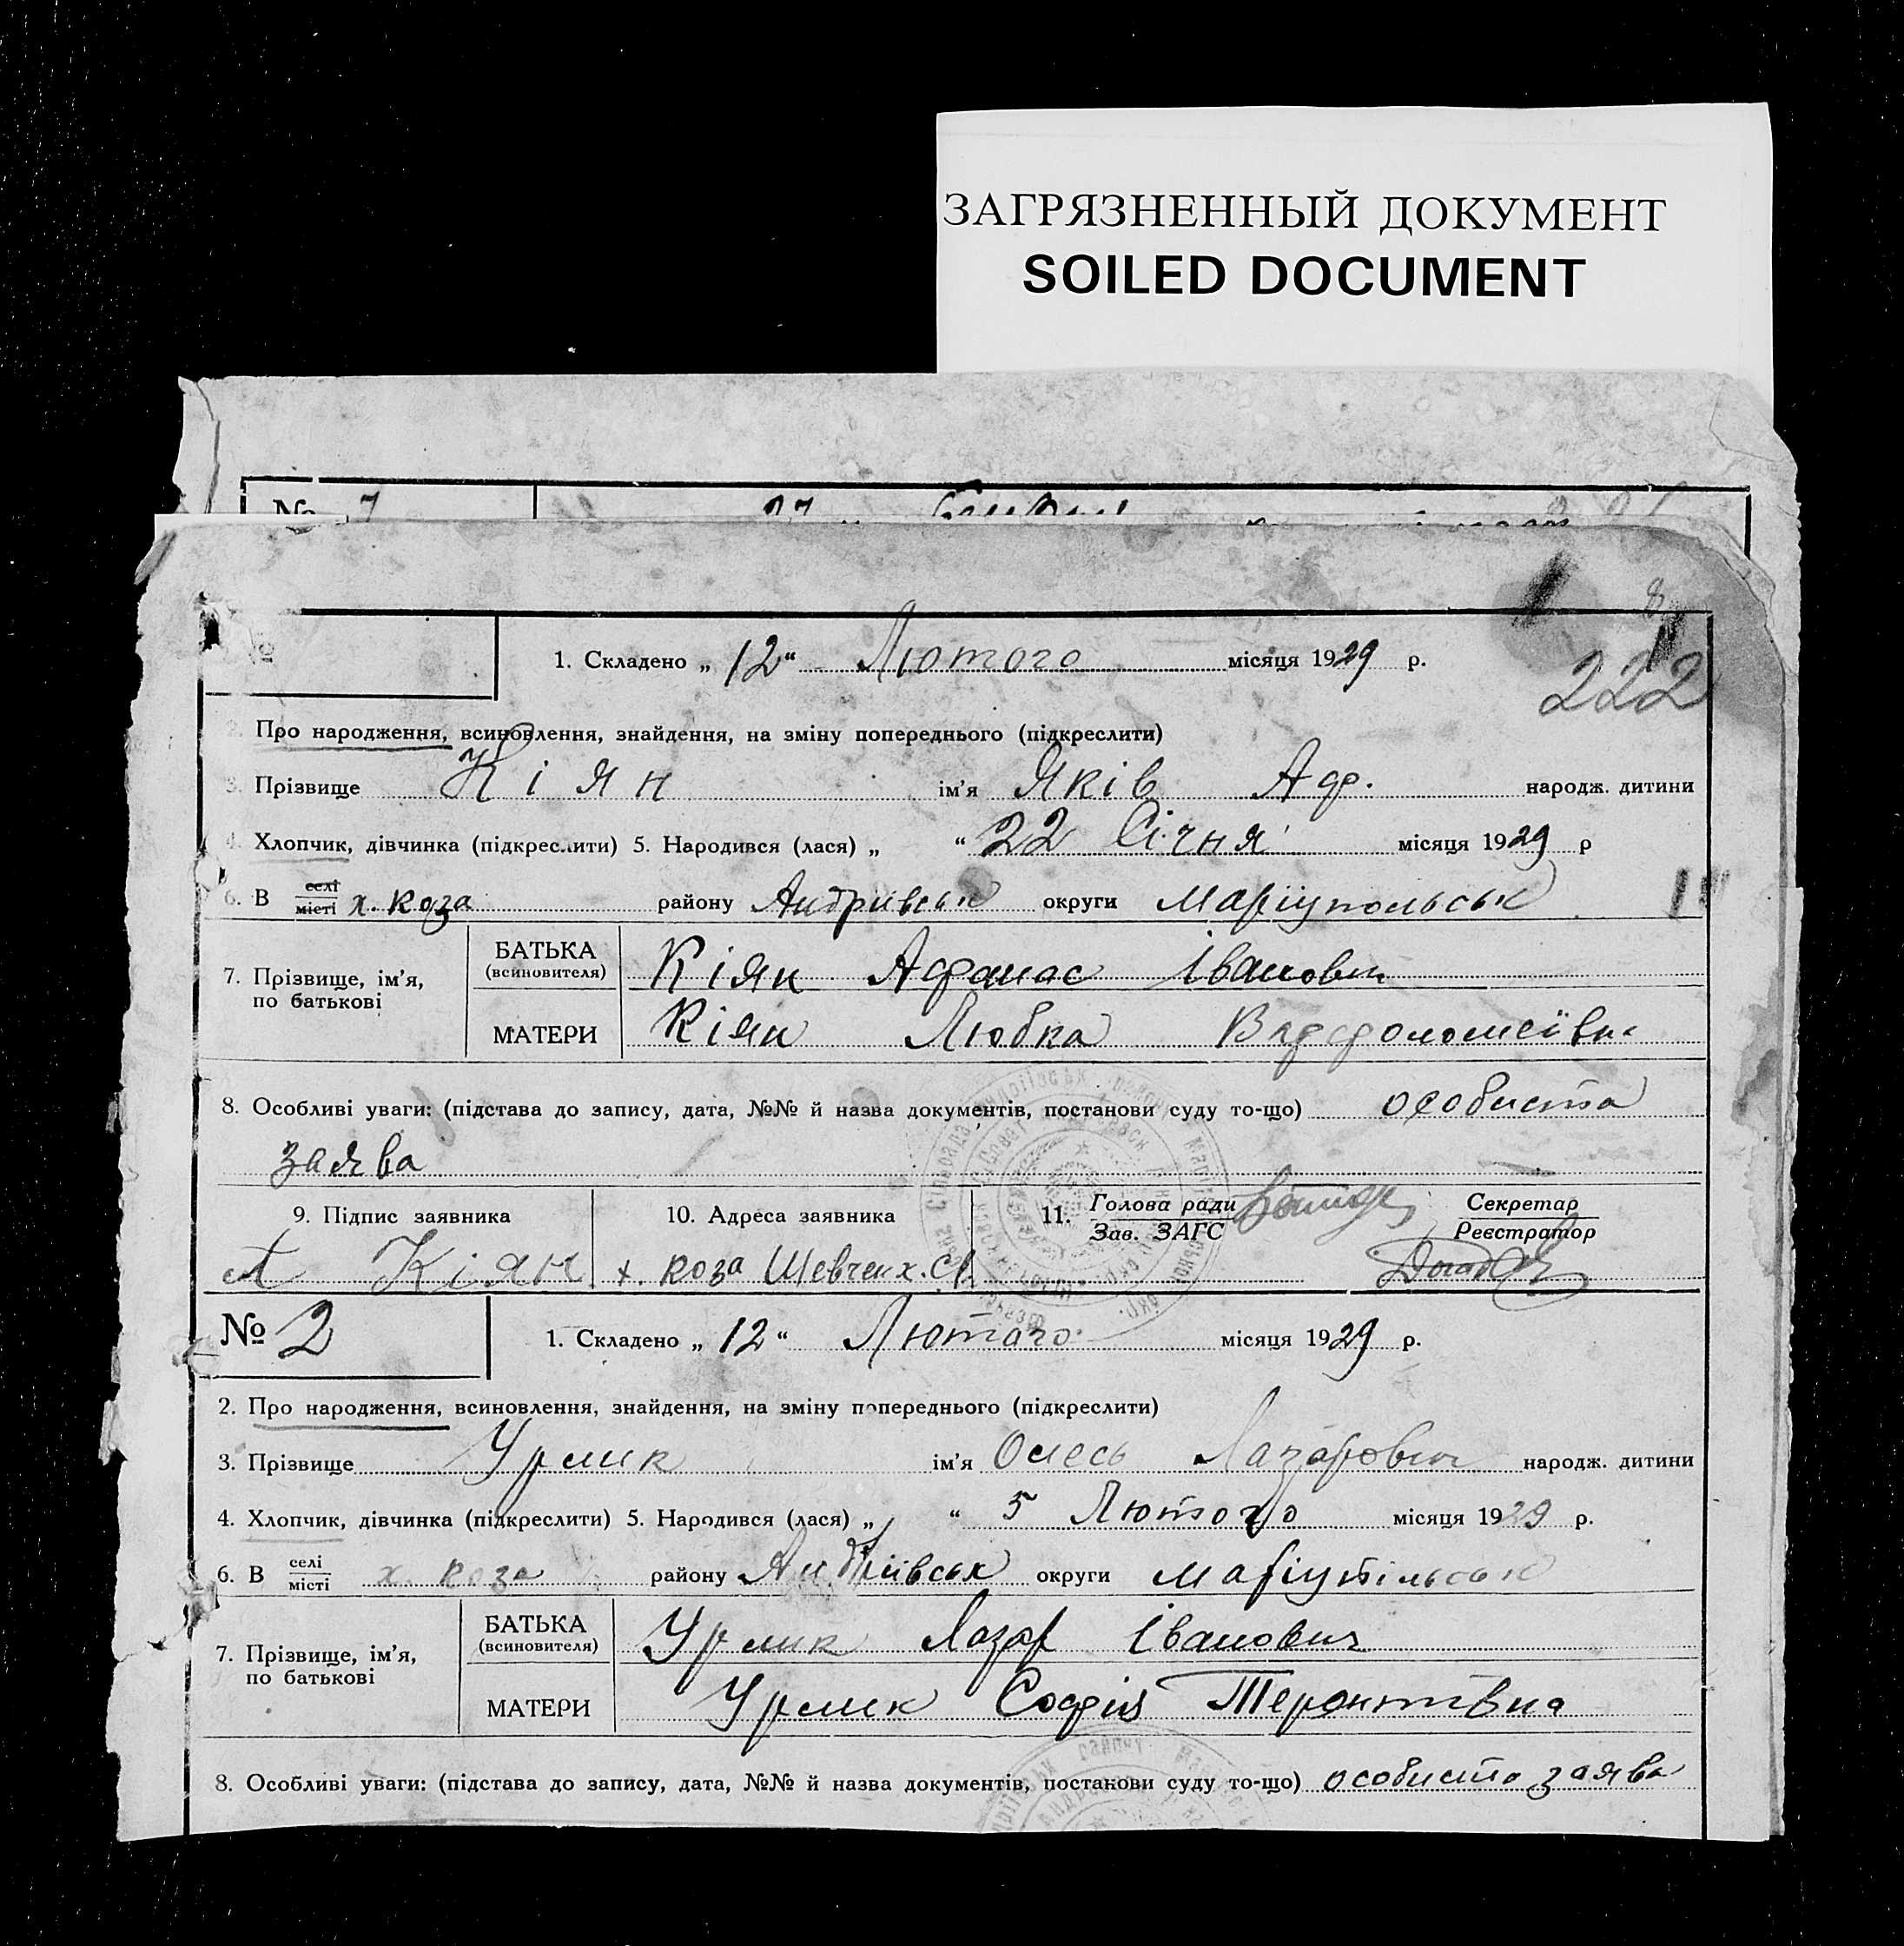 ЗАГРЯЗНЕННЫЙ ДОКУМЕНТ
SOILED DOCUMENT
№ 7 27
1. Складено „ 12 “ Лютого місяця 1929 р.
222
2. Про народження, всиновлення, знайдення, на зміну попереднього (підкреслити)
3. Прізвище Кіян ім'я Яків Аф. народж. дитини
4. Хлопчик, дівчинка (підкреслити) 5. Народився (лася) „ “ 22 Січня місяця 1929 р
6. В селі місті х. коза району Андріівськ округи Маріупольськ
7. Прізвище, ім'я, по батькові БАТЬКА (всиновителя) Кіян Афанас Іванович
МАТЕРИ Кіян Любка
8. Особливі уваги: (підстава до запису, дата, №№ й назва документів, постанови суду то-що) особиста
заява
9. Підпис заявника 10. Адреса заявника 11. Голова ради Зав. ЗАГС Секретар Реєстратор
А Кіян х. коза Шевченк. С/
№ 2 1. Складено „ 12 “ Лютого місяця 1929 р.
2. Про народження, всиновлення, знайдення, на зміну попереднього (підкреслити)
3. Прізвище Урлик ім'я Олесь Лазарович народж. дитини
4. Хлопчик, дівчинка (підкреслити) 5. Народився (лася) „ “ 5 Лютого місяця 1929 р.
6. В селі місті х. коза району Андріівськ округи Маріупільськ
7. Прізвище, ім'я, по батькові БАТЬКА (всиновителя) Урлик Лазар Іванович
МАТЕРИ Урлик Софія Терентівна
8. Особливі уваги: (підстава до запису, дата, №№ й назва документів, постанови суду то-що) особиста заява